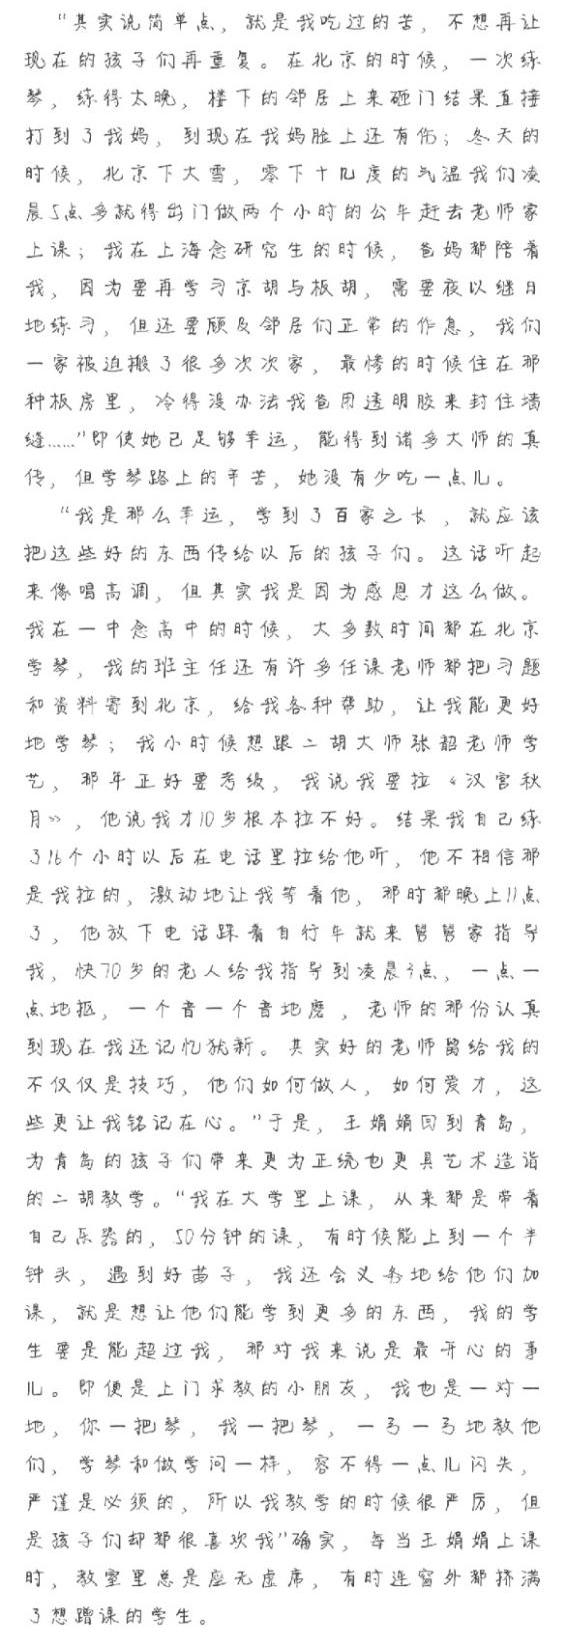 “其实说简单点，就是我吃过的苦，不想再让
现在的孩子们再重复。在北京的时候，一次练
琴，练得太晚，楼下的邻居上来砸门结果直接
打到了我妈，到现在我妈脸上还有伤；冬天的
时候，北京下大雪，零下十几度的气温我们凌
晨5点多就得出门做两个小时的公车赶去老师家
上课；我在上海念研究生的时候，爸妈都陪着
我，因为要再学习京胡与板胡，需要夜以继日
地练习，但还要顾及邻居们正常的作息，我们
一家被迫搬了很多次次家，最惨的时候住在那
种板房里，冷得没办法我爸用透明胶来封住墙
缝……”即使她已足够幸运，能得到诸多大师的真
传，但学琴路上的辛苦，她没有少吃一点儿。
“我是那么幸运，学到了百家之长，就应该
把这些好的东西传给以后的孩子们。这话听起
来像唱高调，但其实我是因为感恩才这么做。
我在一中念高中的时候，大多数时间都在北京
学琴，我的班主任还有许多任课老师都把习题
和资料寄到北京，给我各种帮助，让我能更好
地学琴；我小时候想跟二胡大师张韶老师学
艺，那年正好要考级，我说我要拉《汉宫秋
月》，他说我才10岁根本拉不好。结果我自己练
了16个小时以后在电话里拉给他听，他不相信那
是我拉的，激动地让我等着他，那时都晚上11点
了，他放下电话踩着自行车就来舅舅家指导
我，快70岁的老人给我指导到凌晨3点，一点一
点地抠，一个音一个音地磨，老师的那份认真
到现在我还记忆犹新。其实好的老师留给我的
不仅仅是技巧，他们如何做人，如何爱才，这
些更让我铭记在心。”于是，王娟娟回到青岛，
为青岛的孩子们带来更为正统也更具艺术造诣
的二胡教学。“我在大学里上课，从来都是带着
自己乐器的，50分钟的课，有时候能上到一个半
钟头，遇到好苗子，我还会义务地给他们加
课，就是想让他们能学到更多的东西，我的学
生要是能超过我，那对我来说是最开心的事
儿。即便是上门求教的小朋友，我也是一对一
地，你一把琴，我一把琴，一弓一弓地教他
们，学琴和做学问一样，容不得一点儿闪失，
严谨是必须的，所以我教学的时候很严厉，但
是孩子们却都很喜欢我”确实，每当王娟娟上课
时，教室里总是座无虚席，有时连窗外都挤满
了想蹭课的学生。